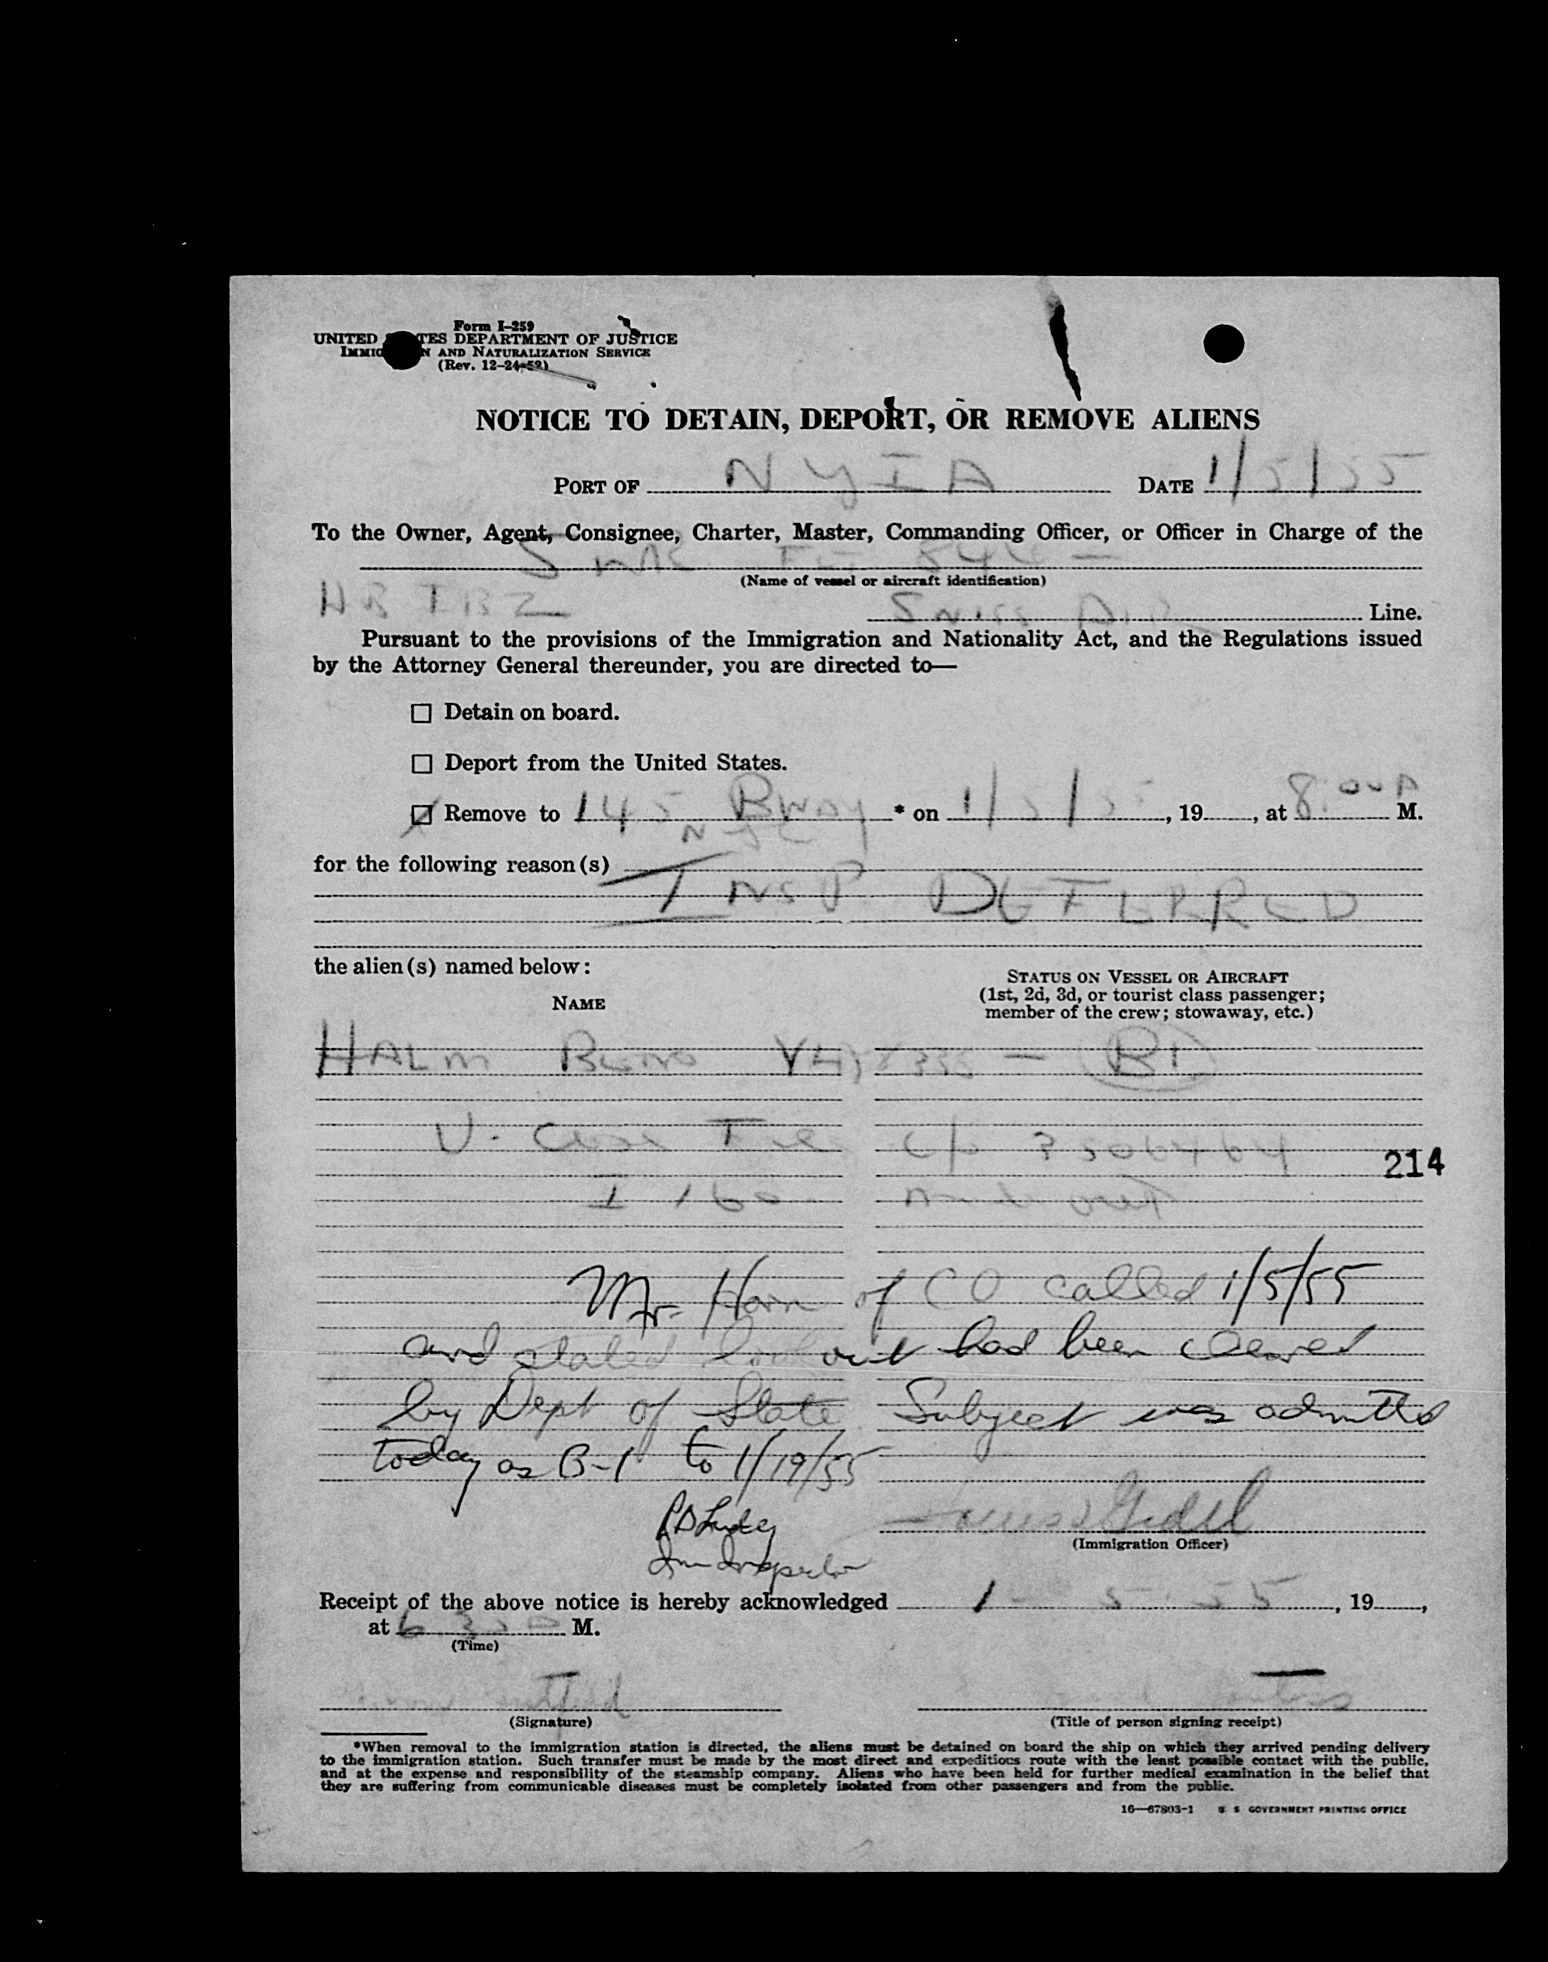 Form I-259
UNITED STATES DEPARTMENT OF JUSTICE
IMMIGRATION AND NATURALIZATION SERVICE
(Rev. 12-24-52)
NOTICE TO DETAIN, DEPORT, OR REMOVE ALIENS
PORT OF NYIA DATE 1/5/55
To the Owner, Agent, Consignee, Charter, Master, Commanding Officer, or Officer in Charge of the
844 -
(Name of vessel or aircraft identification)
HB IBI Swiss Air Line.
Pursuant to the provisions of the Immigration and Nationality Act, and the Regulations issued
by the Attorney General thereunder, you are directed to—
☐ Detain on board.
☐ Deport from the United States.
☑ Remove to 145 Bway * on 1/5/55, 19, at 8:00 P M.
NYC
for the following reason(s)
INSP DEFERRED
the alien(s) named below:
STATUS ON VESSEL OR AIRCRAFT
(1st, 2d, 3d, or tourist class passenger;
member of the crew; stowaway, etc.)
NAME
HALM — B1
214
I 160
Mr. Horn of CO called 1/5/55
and stated lookout had been cleared
by Dept of State Subject was admitted
today as B-1 to 1/19/55
(Immigration Officer)
Imm Inspector
Receipt of the above notice is hereby acknowledged 1 - 5 - 55, 19,
at 6 30 P M.
(Time)
(Signature) (Title of person signing receipt)
*When removal to the immigration station is directed, the aliens must be detained on board the ship on which they arrived pending delivery
to the immigration station. Such transfer must be made by the most direct and expeditious route with the least possible contact with the public,
and at the expense and responsibility of the steamship company. Aliens who have been held for further medical examination in the belief that
they are suffering from communicable diseases must be completely isolated from other passengers and from the public.
16—67803-1 U. S. GOVERNMENT PRINTING OFFICE